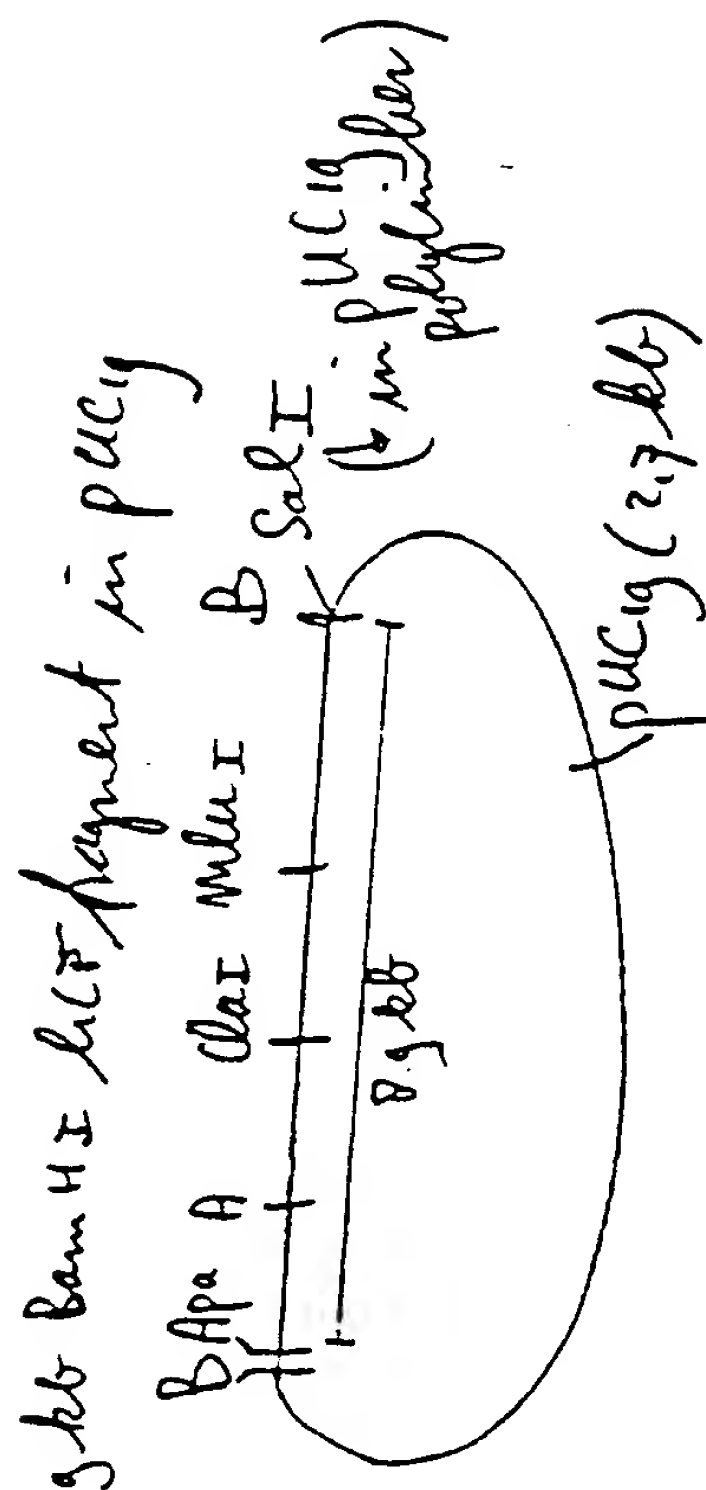 9 kb Bam HI fragment in pUC19
B Apa A ClaI MluI B SalI
(↳ in pUC19
polylinker)
8.9 kb
pUC19 (2,7 kb)